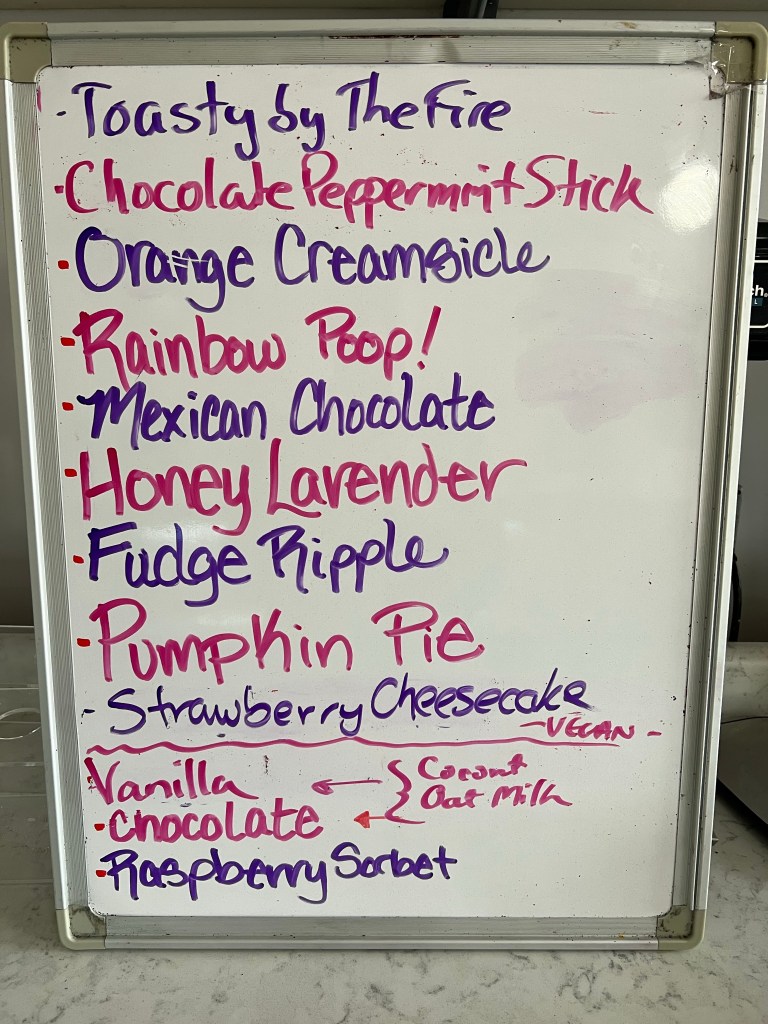 - Toasty by The Fire
· Chocolate Peppermint Stick
· Orange Creamsicle
· Rainbow Poop!
· Mexican Chocolate
· Honey Lavender
· Fudge Ripple
· Pumpkin Pie
- Strawberry Cheesecake
- VEGAN -
· Vanilla
Coconut
Oat Milk
· Chocolate
· Raspberry Sorbet
ch